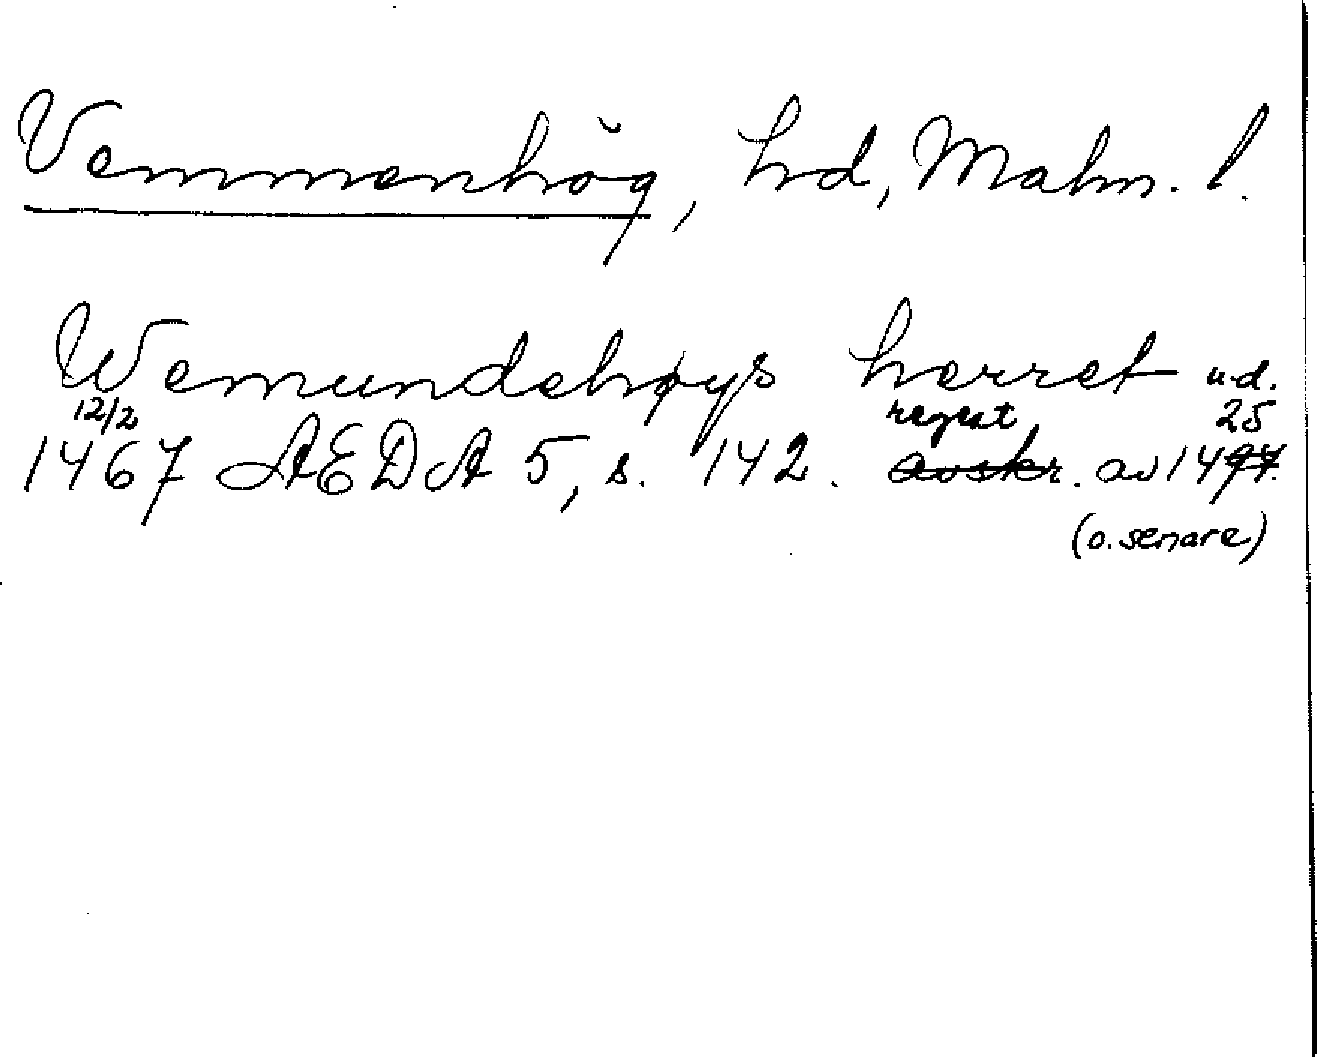 Vemmenhög, hd, Malm. l.
Wemundehøys herret u.d.
12/2 regest 25
1467 AEDA 5, s. 142. avskr. av 1497.
(o. senare)